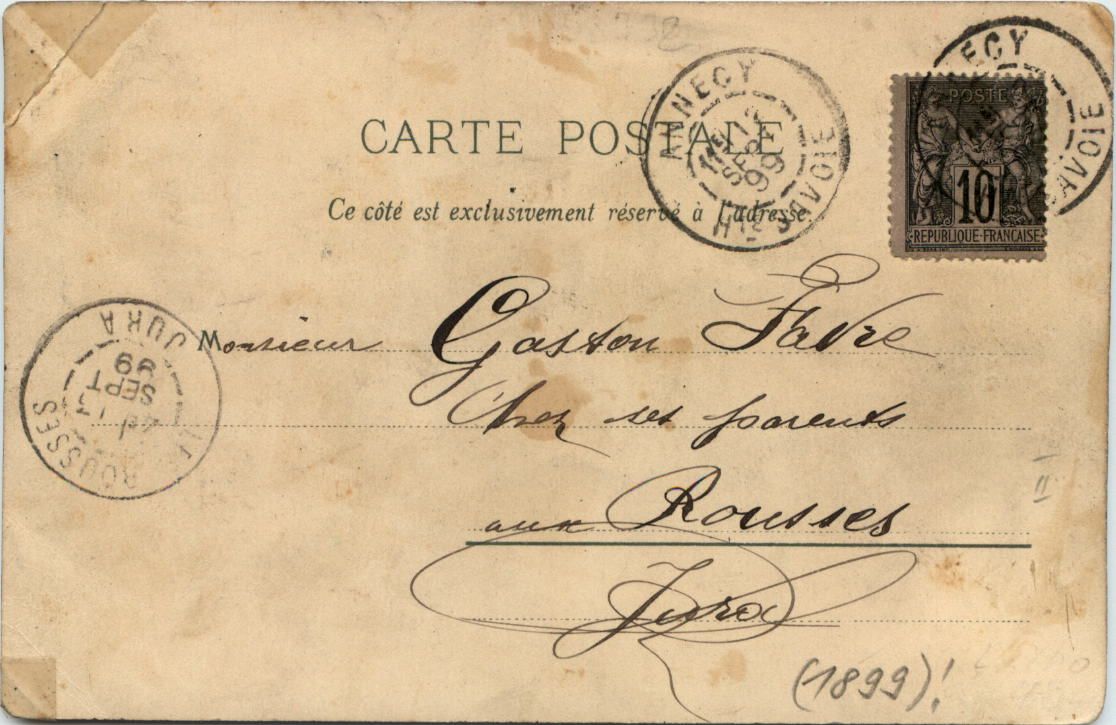 CARTE POSTALE
Ce côté est exclusivement réservé à l'adresse.
ANNECY
SEPT
99
HTE SAVOIE
ECY
AVOIE
POSTE
10
REPUBLIQUE FRANCAISE
JURA
SEPT
99
ROUSSES
Monsieur Gaston Favre
Chez ses parents
aux Rousses
Jura
(1899)!